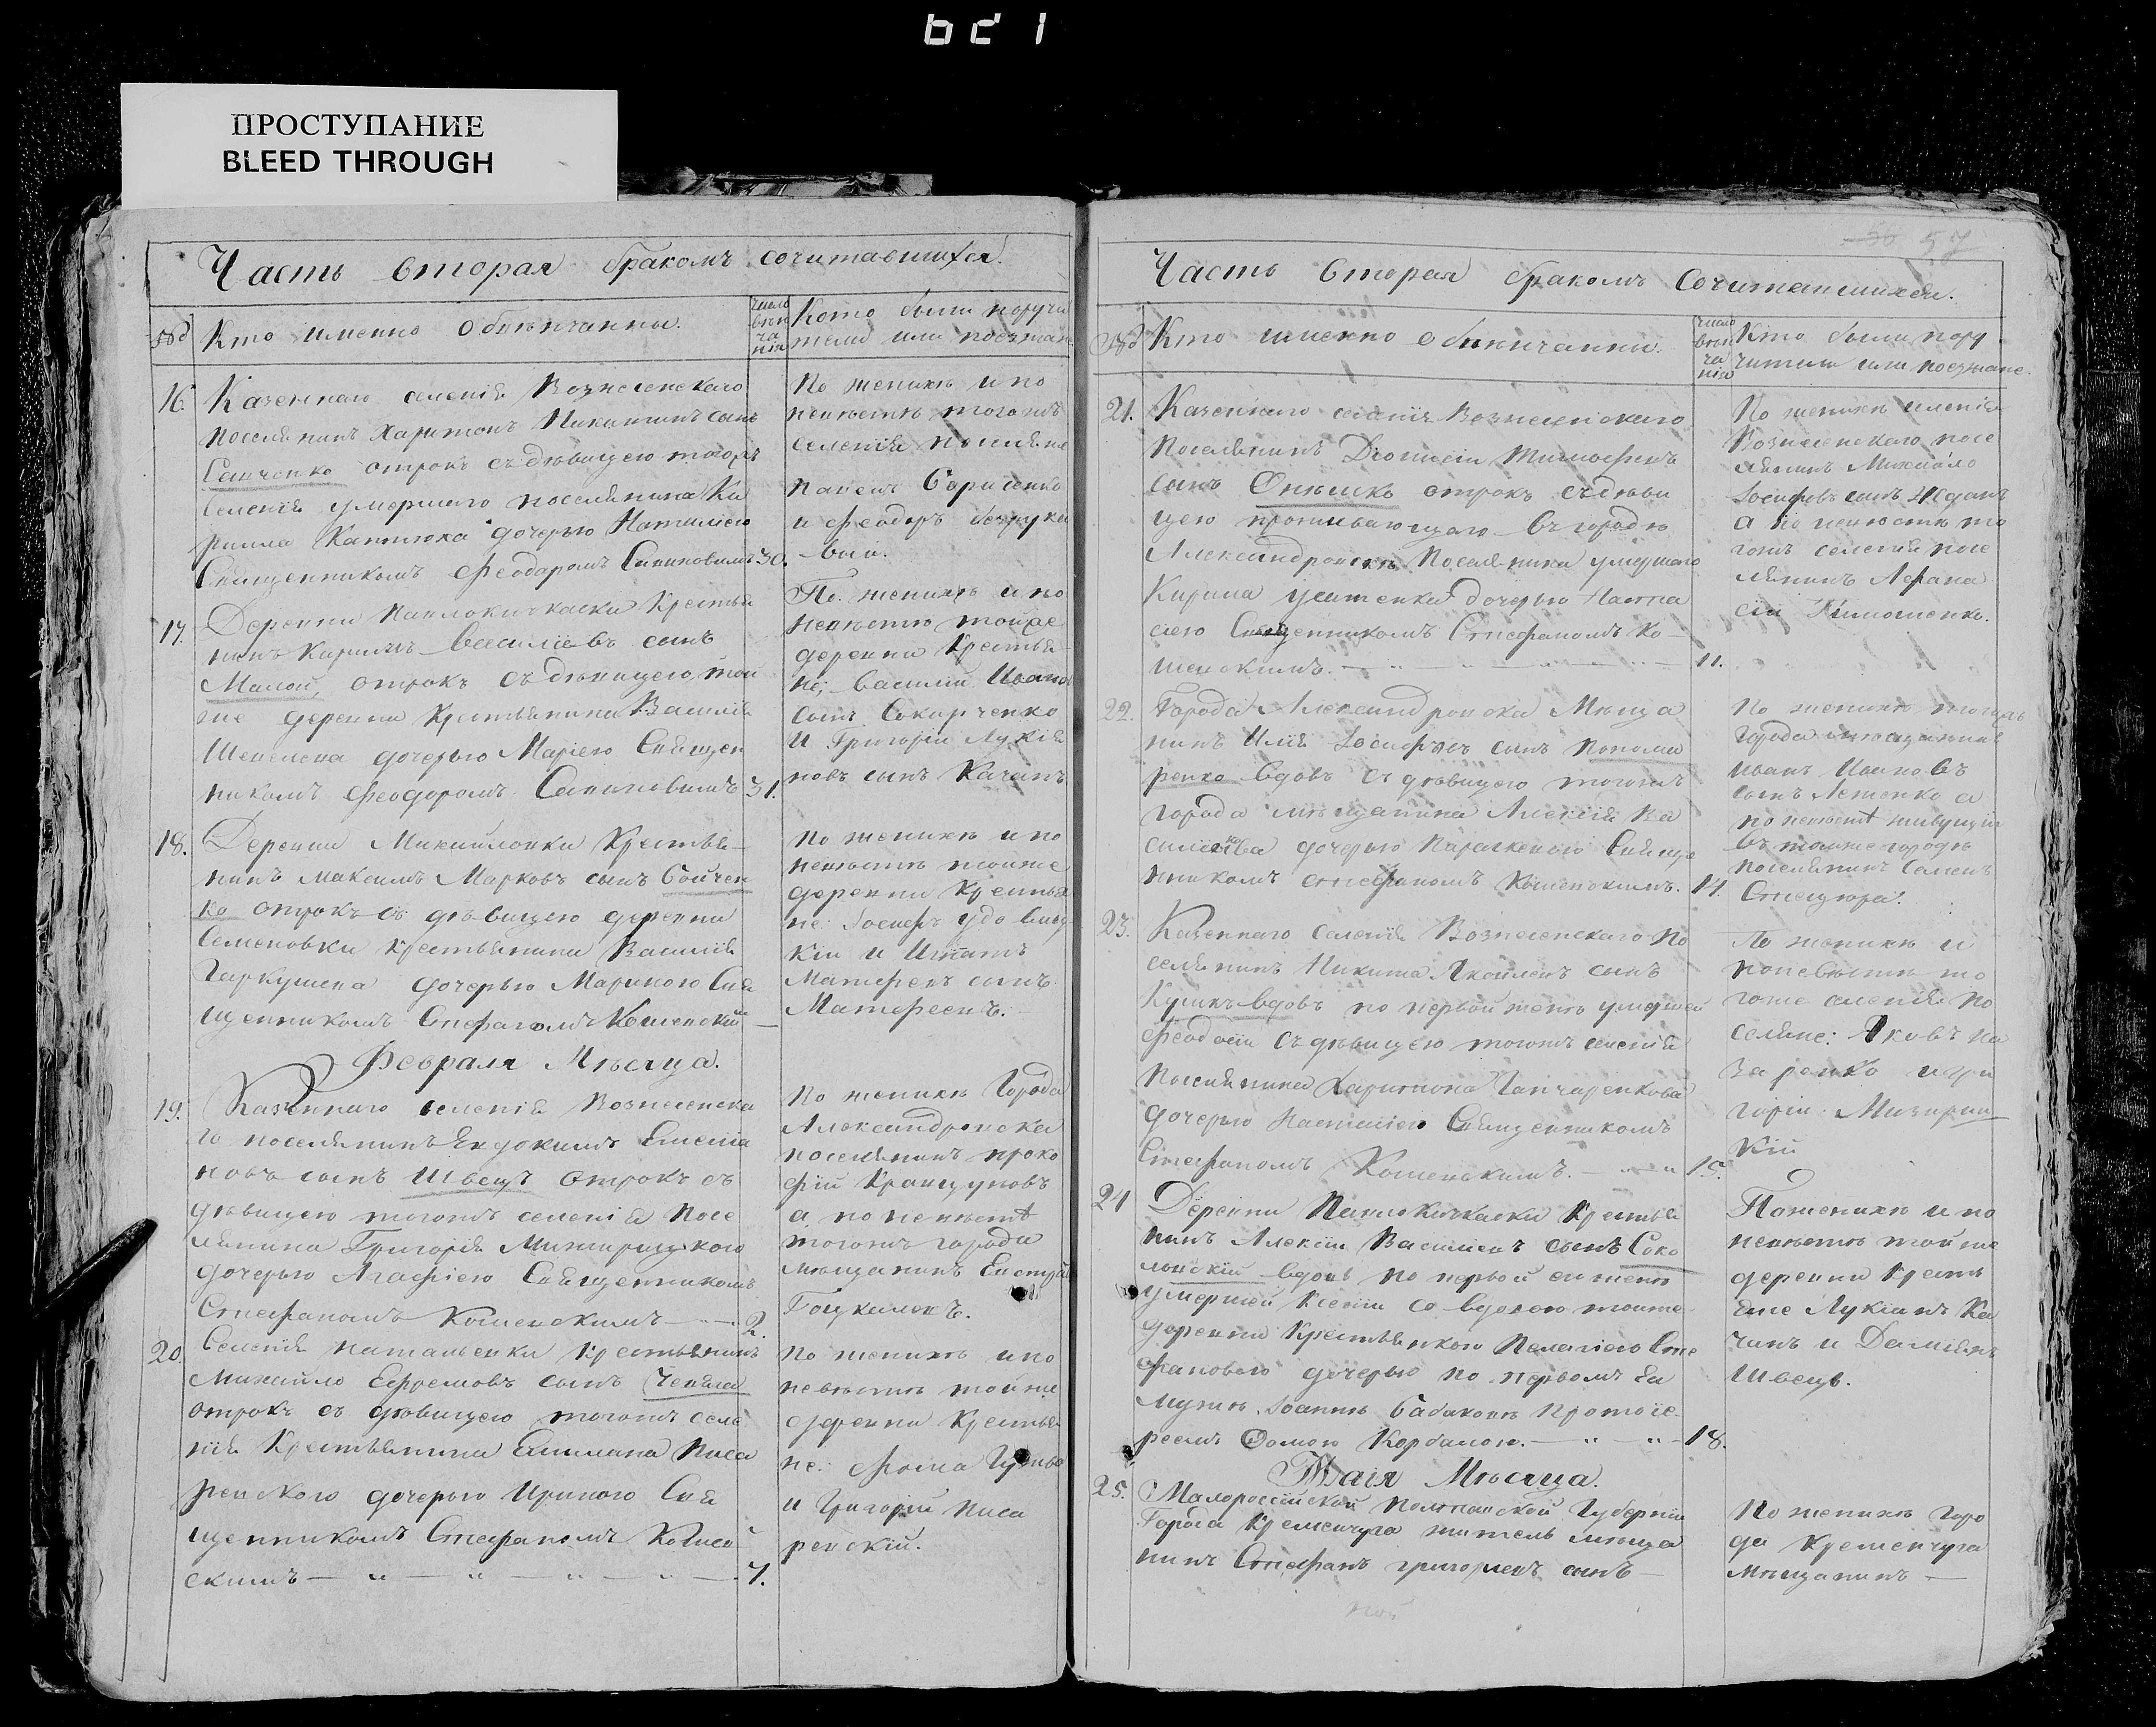 621
ПРОСТУПАНИЕ
BLEED THROUGH
Часть вторая бракомъ сочитавшихся.
№ Кто именно обвѣнчанны.
число вѣнчанія
Кто были поручи
тели или поезжан
16. Казеннаго селенія Вознесенскаго
поселянинъ Харитонъ Никитинъ сынъ
Санченко отрокъ съ дѣвицею тогожъ
селенія умершаго поселянина Ки
рилла дочерью Наталіею
Священникомъ Феодоромъ 30.
По женихѣ и по
невѣстѣ тогожъ
селенія поселяне
Павелъ Борисенко
и Феодоръ
17. Деревни Павлокичкаски Крестья
нинъ Кирилъ Василіевъ сынъ
Малой, отрокъ съ дѣвицею той
же деревни Крестьянина Василія
дочерью Маріею Священ
никомъ Феодоромъ 31.
По женихѣ и по
невѣстѣ тойже
деревни Крестья
не; Василій Иванов
сынъ Сокирченко
и Григорій Лукія
новъ сынъ Качанъ
18. Деревни Михайловки Крестья
нинъ Максимъ Марковъ сынъ Бойчен
ко отрокъ съ дѣвицею деревни
Семеновки крестьянина Василія
Гаркушена дочерью Мариною Свя
щенникомъ Стефаномъ Кошевскимъ —
По женихѣ и по
невѣстѣ тойже
деревни Крестья
не: Іосифъ Удовиц
кій и Игнатъ
Матфеевъ сынъ
Матфеевъ.
Февраля Мѣсяца.
19. Казеннаго селенія Вознесенска
го поселянинъ Евдокимъ Емелія
новъ сынъ Швецъ отрокъ съ
дѣвицею тогожъ селенія посе
лянина Григорія Мижирицкого
дочерью Агафіею Священникомъ
Стефаномъ Кошевскимъ — 2.
По женихѣ Города
Александровска
поселянинъ Проко
фій Кравцуновъ
а по невѣстѣ
тогожъ города
мѣщанинъ
20. Селенія Натальевки крестьянинъ
Михайло Ефремовъ сынъ Чепела
отрокъ съ дѣвицею тогожъ селе
нія Крестьянина Емиліана Писа
ревского дочерью Ириною Свя
щенникомъ Стефаномъ Кошев
скимъ — " — " — " — " — 7.
По женихѣ и по
невѣстѣ тойже
деревни Крестья
не: Фома
и Григорій Писа
ревскій.
57
Часть вторая бракомъ сочитавшихся.
№ Кто именно обвѣнчанны.
число вѣнчанія
Кто были пору
чители или поезжане.
21. Казеннаго селенія Вознесенскаго
Поселянинъ Діонисій Тимофеевъ
сынъ Онѣшко отрокъ съ дѣви
цею проживающаго въ городѣ
Александровскѣ Поселянина умершаго
Кирила Усатенка дочерью Наста
сіею Священникомъ Стефаномъ Ко
шевскимъ. — " — " — " — 11.
По женихѣ селенія
Вознесенскаго посе
лянинъ Михайло
Іосифовъ сынъ
а по невѣстѣ то
гожъ селенія посе
лянинъ Афана
сій Тимошенко.
22. Города Александровска Мѣща
нинъ Илія Іосифовъ сынъ Понома
ренко вдовъ съ дѣвицею тогожъ
города мѣщанина Алексія Ва
силенкова дочерью Параскевіею Свяще
нникомъ Стефаномъ Кошевскимъ. 14.
По женихѣ тогожъ
города мѣщанинъ
Иванъ Ивановъ
сынъ Лещенко а
по невѣстѣ живущій
въ томже городѣ
поселянинъ Семенъ
Стецюра.
23. Казеннаго селенія Вознесенскаго по
селянинъ Никита Яковлевъ сынъ
Куликъ вдовъ по первой женѣ умершей
Феодосіи съ дѣвицею тогожъ селенія
поселянина Харитона Ганчаренкова
дочерью Настасіею Священникомъ
Стефаномъ Кошевскимъ. — " — " 15.
По женихѣ и
по невѣстѣ то
гоже селенія по
селяне: Яковъ На
заренко и Гри
горій Мижириц
кій
24 Деревни Павлокичкаски Крестья
нинъ Алексій Василіевъ сынъ Соко
ловскій вдовъ по первой его женѣ
умершей Ксеніи со вдовою тойже
деревни Крестьянкою Пелагіею Сте
фановою дочерью по первомъ ея
мужѣ Іоаннѣ Бабаковѣ Протоіе
реемъ Фомою Корбаломъ. — " — " — 18.
По женихѣ и по
невѣстѣ тойже
деревни Кресть
яне Лукіанъ Ка
чанъ и Даміянъ
Швецъ.
Маія Мѣсяца.
25. Малороссійской Полтавской Губерніи
Города Кременчуга житель мѣща
нинъ Стефанъ Григорьевъ сынъ —
По женихѣ Горо
да Кременчуга
Мѣщанинъ —